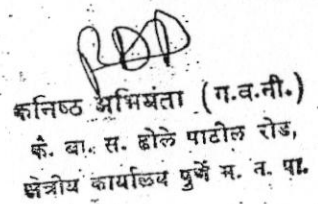 कनिष्ठ अभियंता (ग.व.नी.)
कै. बा. स. ढोले पाटील रोड,
क्षेत्रीय कार्यालय पुणें म. न. पा.